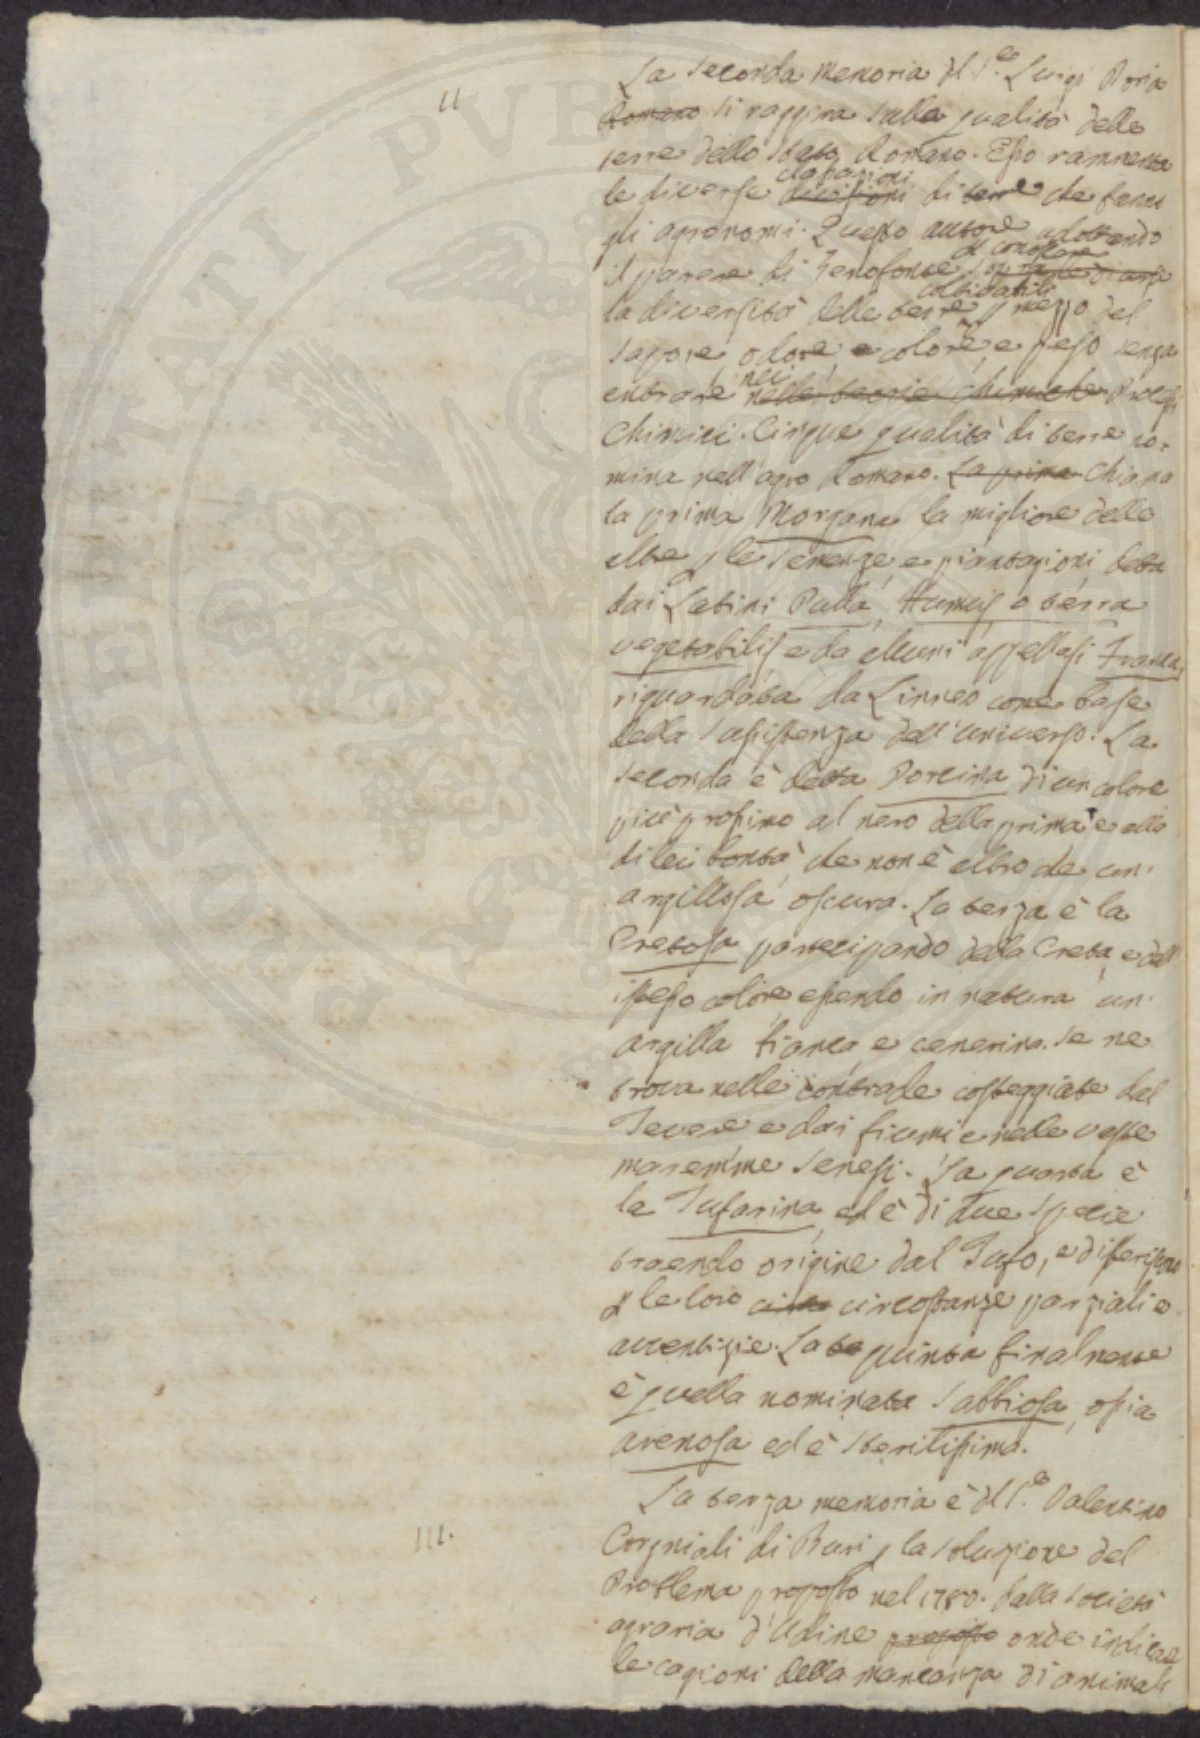 II
La seconda memoria del S.re Luigi Doria
Romano si raggira sulla qualità delle
terre dello Stato Romano. Esso rammenta
le diverse divisioni classazioni di terre che fanno
gli agronomi. Questo autore adottando
il parere di Zenofonte di conoscere
la diversità delle terre coltivabili p mezzo del
sapore, odore, e colore, e peso senza
entrare nelle teorie chimiche nei Processi
Chimici. Cinque qualità di terre no=
mina nell'agro Romano. La prima Chiama
la prima Morgana la migliore delle
altre p le semenze, e piantagioni, detta
dai Latini Pulla, Humus, o terra
vegetabilis e da alcuni appellasi Franca,
riguardata da Linneo come base
della sussistenza dell'universo. La
seconda è detta Porcina di un colore
più prossimo al nero della prima e alla
di lei bontà, che non è altro che un'
argillosa oscura. La terza è la
Cretosa partecipando della Creta, e dell'
istesso colore essendo in natura un'
argilla bianca e cenerina. Se ne
trova nelle contrade costeggiate dal
Tevere e dai fiumi e nelle vaste
maremme Senesi. La quarta è
la Tufarina, ed è di due specie
traendo origine dal Tufo, e differiscono
p le loro circostanze parziali e
avventizie. La te quinta finalmente
è quella nominata Sabbiosa, ossia
arenosa ed è sterilissima.
III.
La terza memoria è del S.re Valentino
Corgniali di Buri p la soluzione del
Problema proposto nel 1780. dalla Società
agraria d'Udine proposto onde indicare
le cagioni della mancanza di animali
PROSPERITATI PUBL